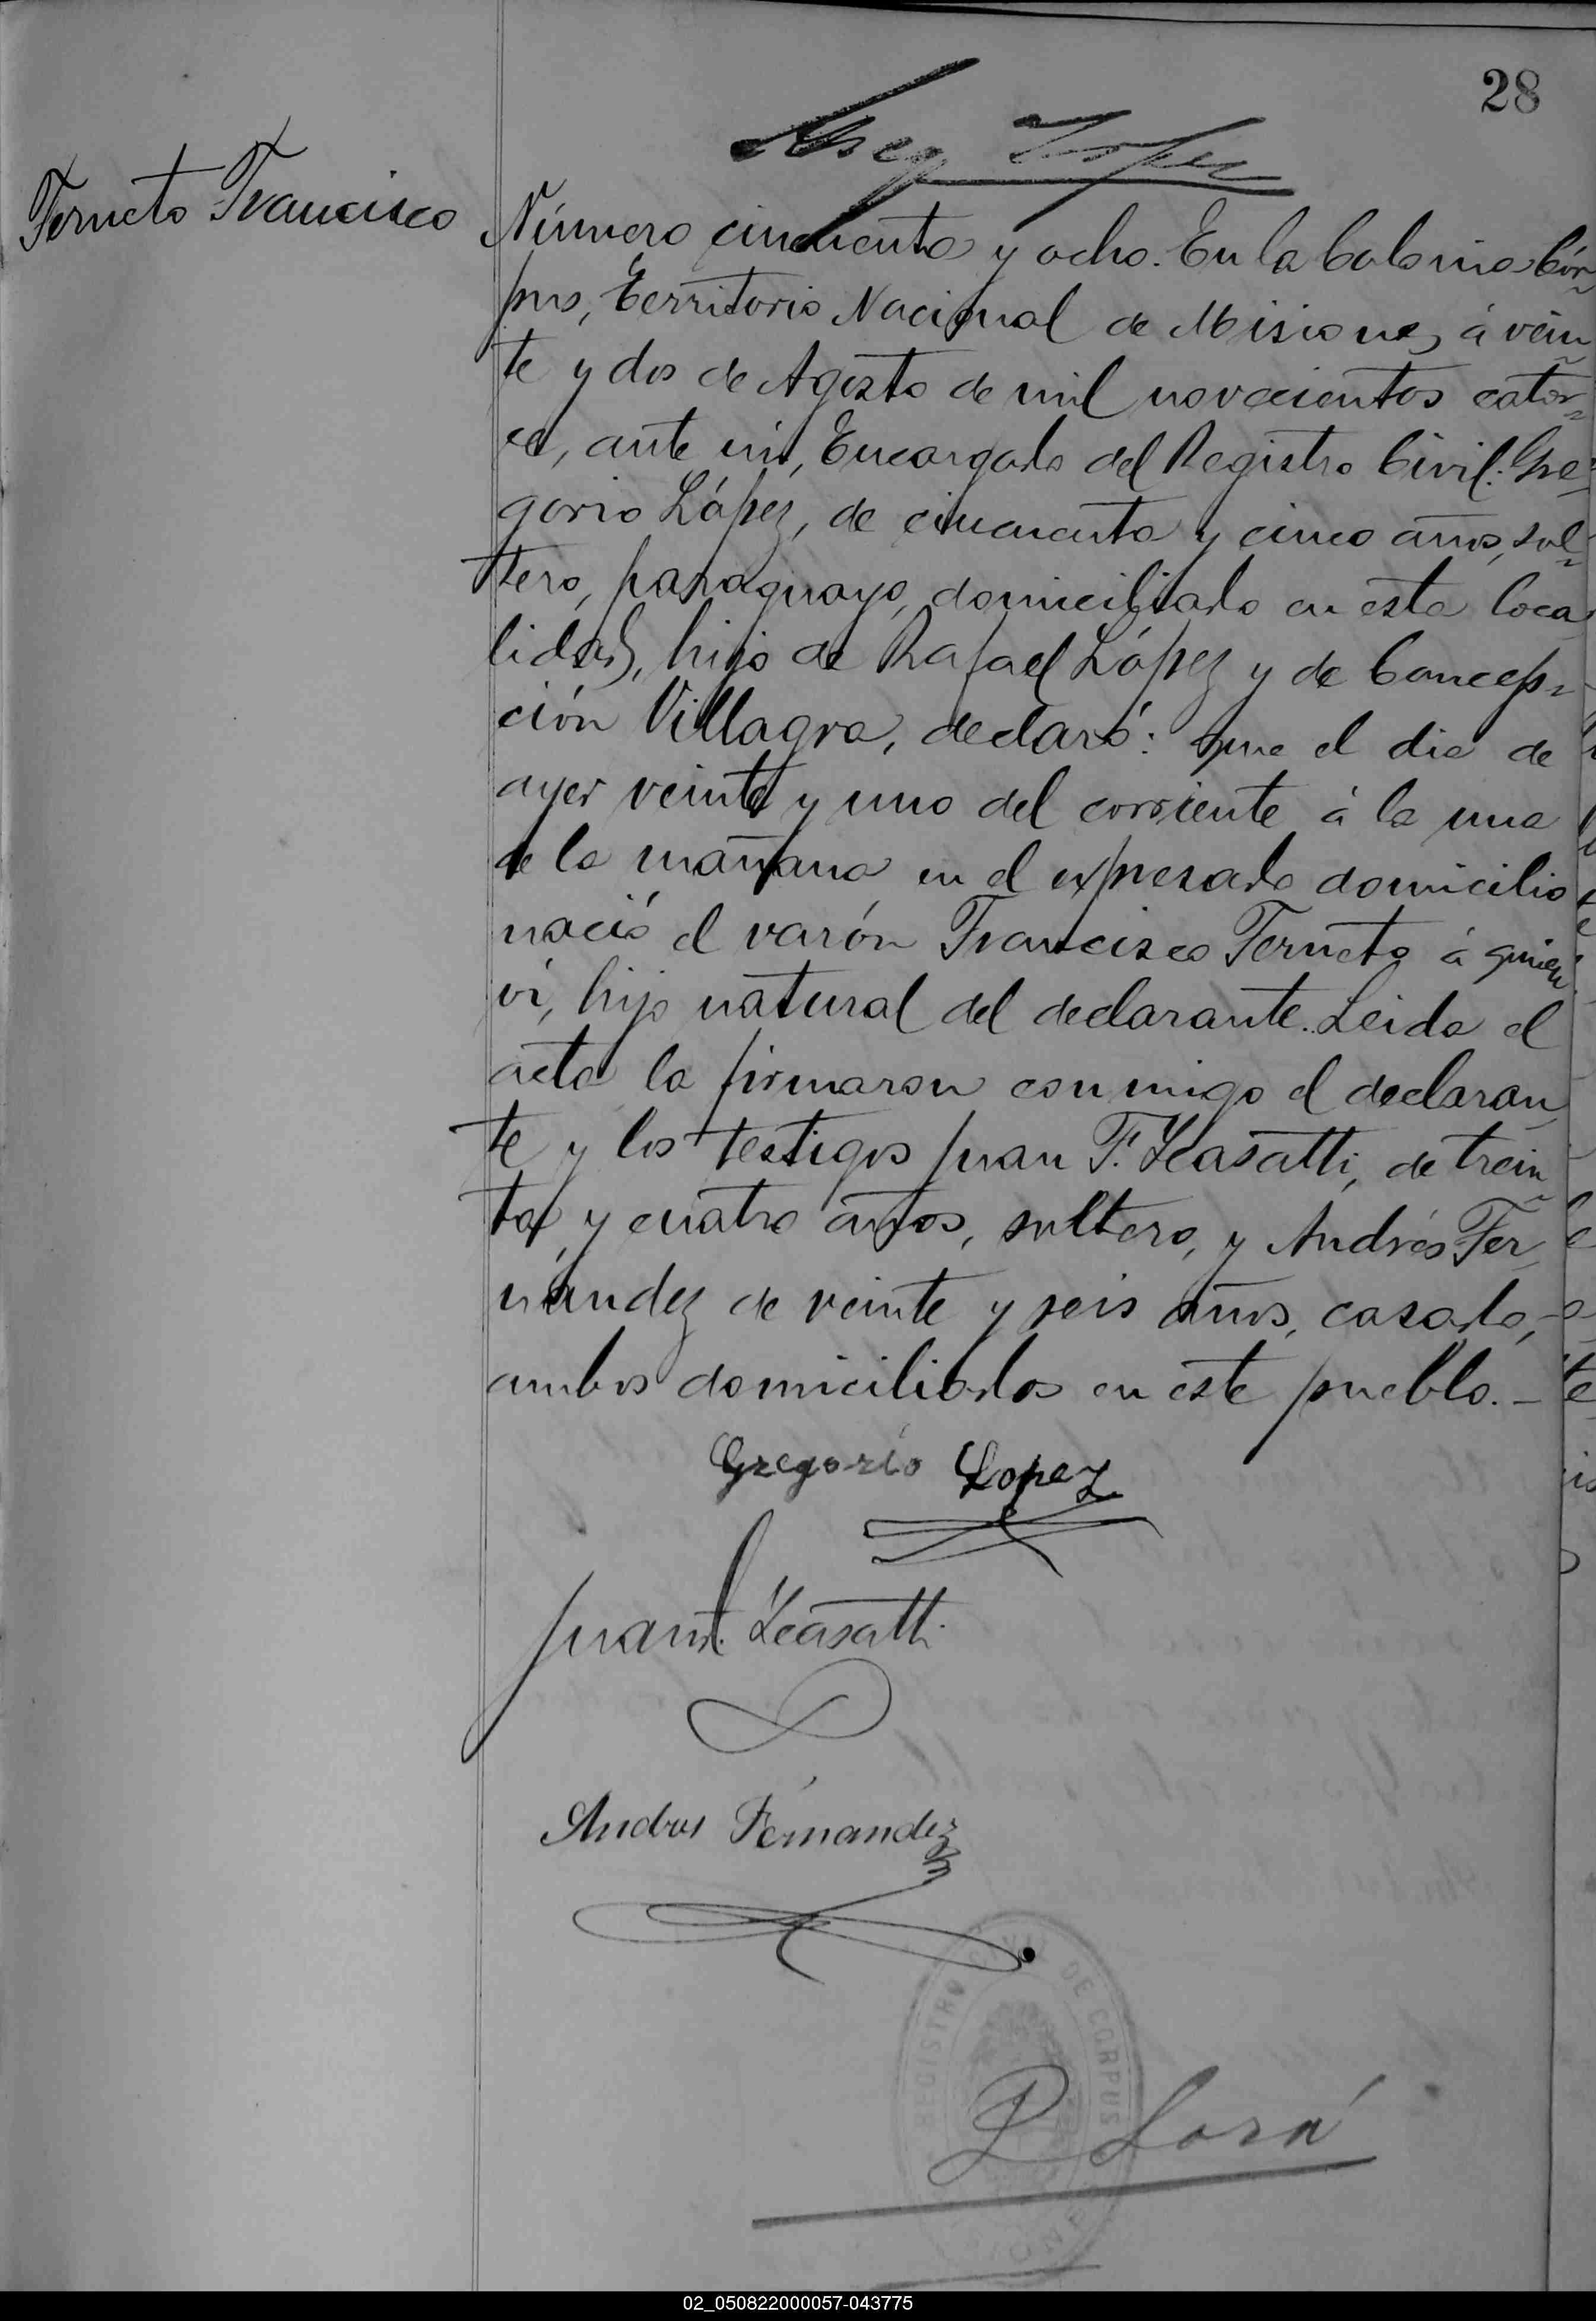 28
Lopez
Ferneto Francisco
Número cincuenta y ocho. En la Colonia Cór-
pus, Territorio Nacional de Misiones, á vein-
te y dos de Agosto de mil novecientos cator-
ce, ante mí, Encargado del Registro Civil: Gre-
gorio López, de cincuenta y cinco años, sol-
tero, paraguayo, domiciliado en esta loca-
lidad, hijo de Rafael López y de Concep-
ción Villagra, declaró: Que el dia de
ayer veinte y uno del corriente á la una
de la mañana en el expresado domicilio
nació el varón Francisco Ferneto á quien
ví, hijo natural del declarante. Leida el
acta la firmaron conmigo el declaran-
te y los testigos Juan F. Leasatti, de trein-
ta y cuatro años, soltero, y Andrés Fer-
nández de veinte y seis años, casado,
ambos domiciliados en este pueblo. -
Gregorio Lopez
Juan F. Leasatti
Andres Fernandez
REGISTRO CIVIL DE CORPUS
MISIONES
02_050822000057-043775